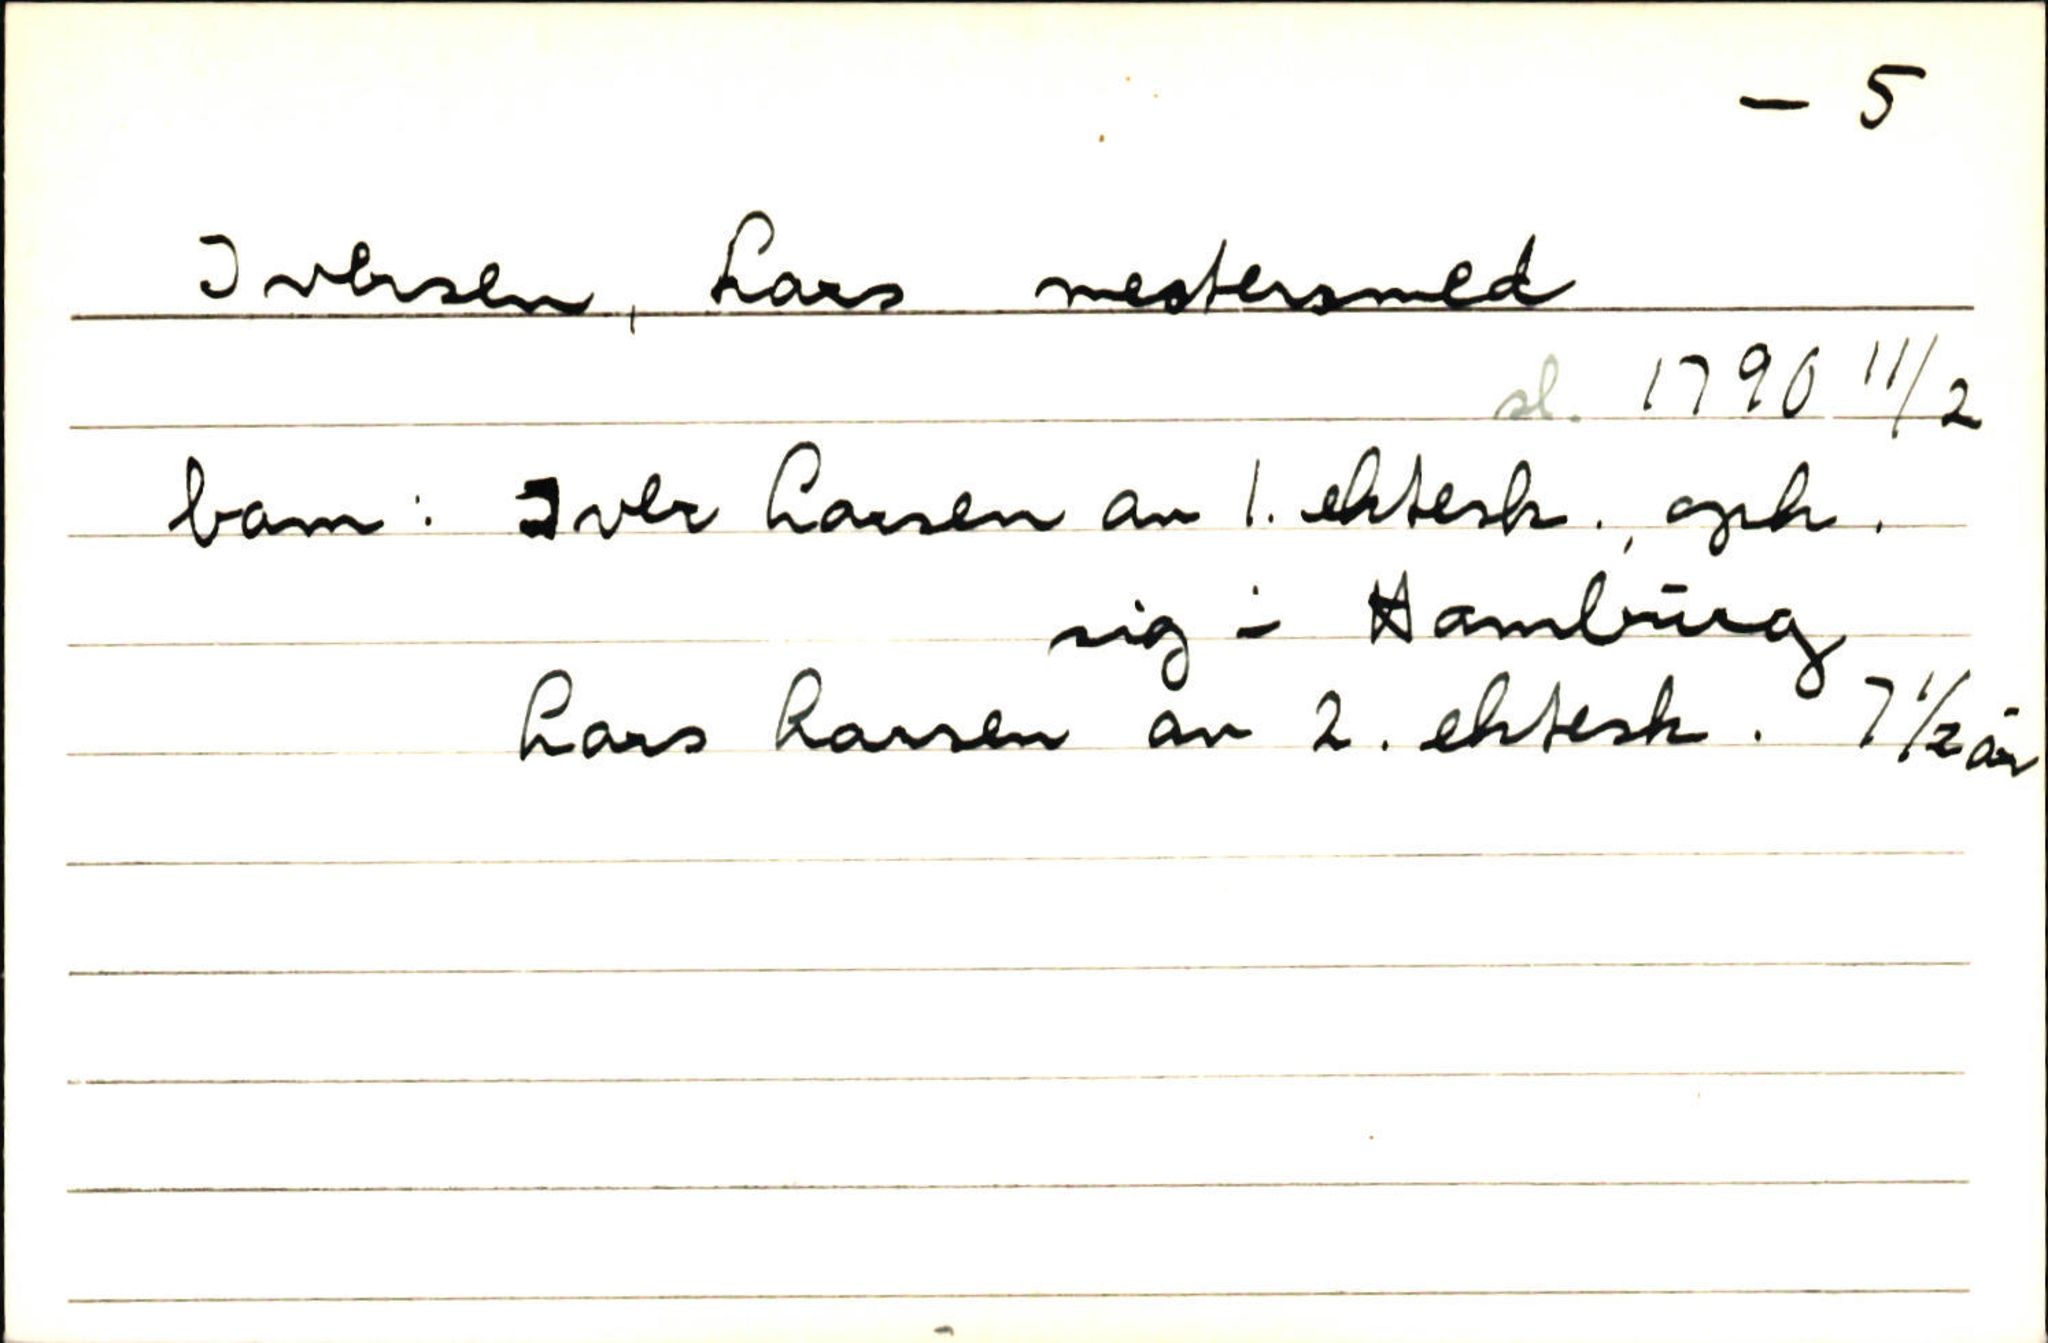 – 5
Iversen, Lars mestersmed
sl. 1790 11/2
barn: Iver Larsen av 1. ektesk., oph.
sig i Hamburg
Lars Larsen av 2. ektesk. 7 1/2 år